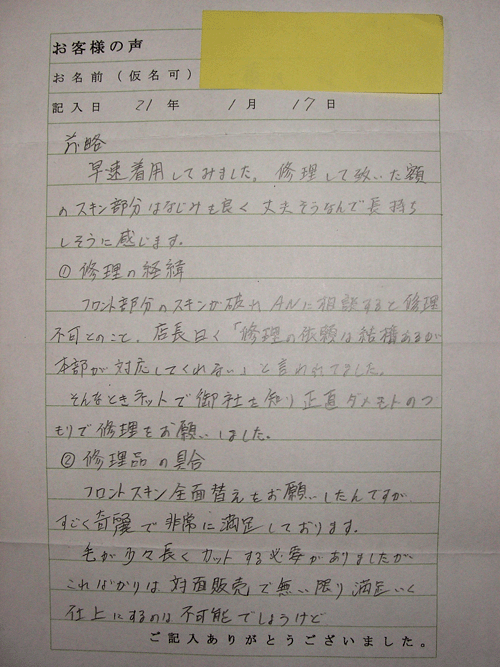 お客様の声
お名前(仮名可)
記入日 21年 1月 17日
前略
早速着用してみました。修理して致いた額
のスキン部分はなじみも良く丈夫そうなんで長持ち
しそうに感じます。
①修理の経緯
フロント部分のスキンが破れANに相談すると修理
不可とのこと、店長曰く「修理の依頼は結構あるが
本部が対応してくれない」と言われてました。
そんなときネットで御社を知り正直ダメモトのつ
もりで修理をお願いしました。
②修理品の具合
フロントスキン全面替えをお願いしたんですが
すごく奇麗で非常に満足しております。
毛が多々長くカットする必要がありましたが
こればかりは対面販売で無い限り満足いく
仕上にするのは不可能でしょうけど
ご記入ありがとうございました。